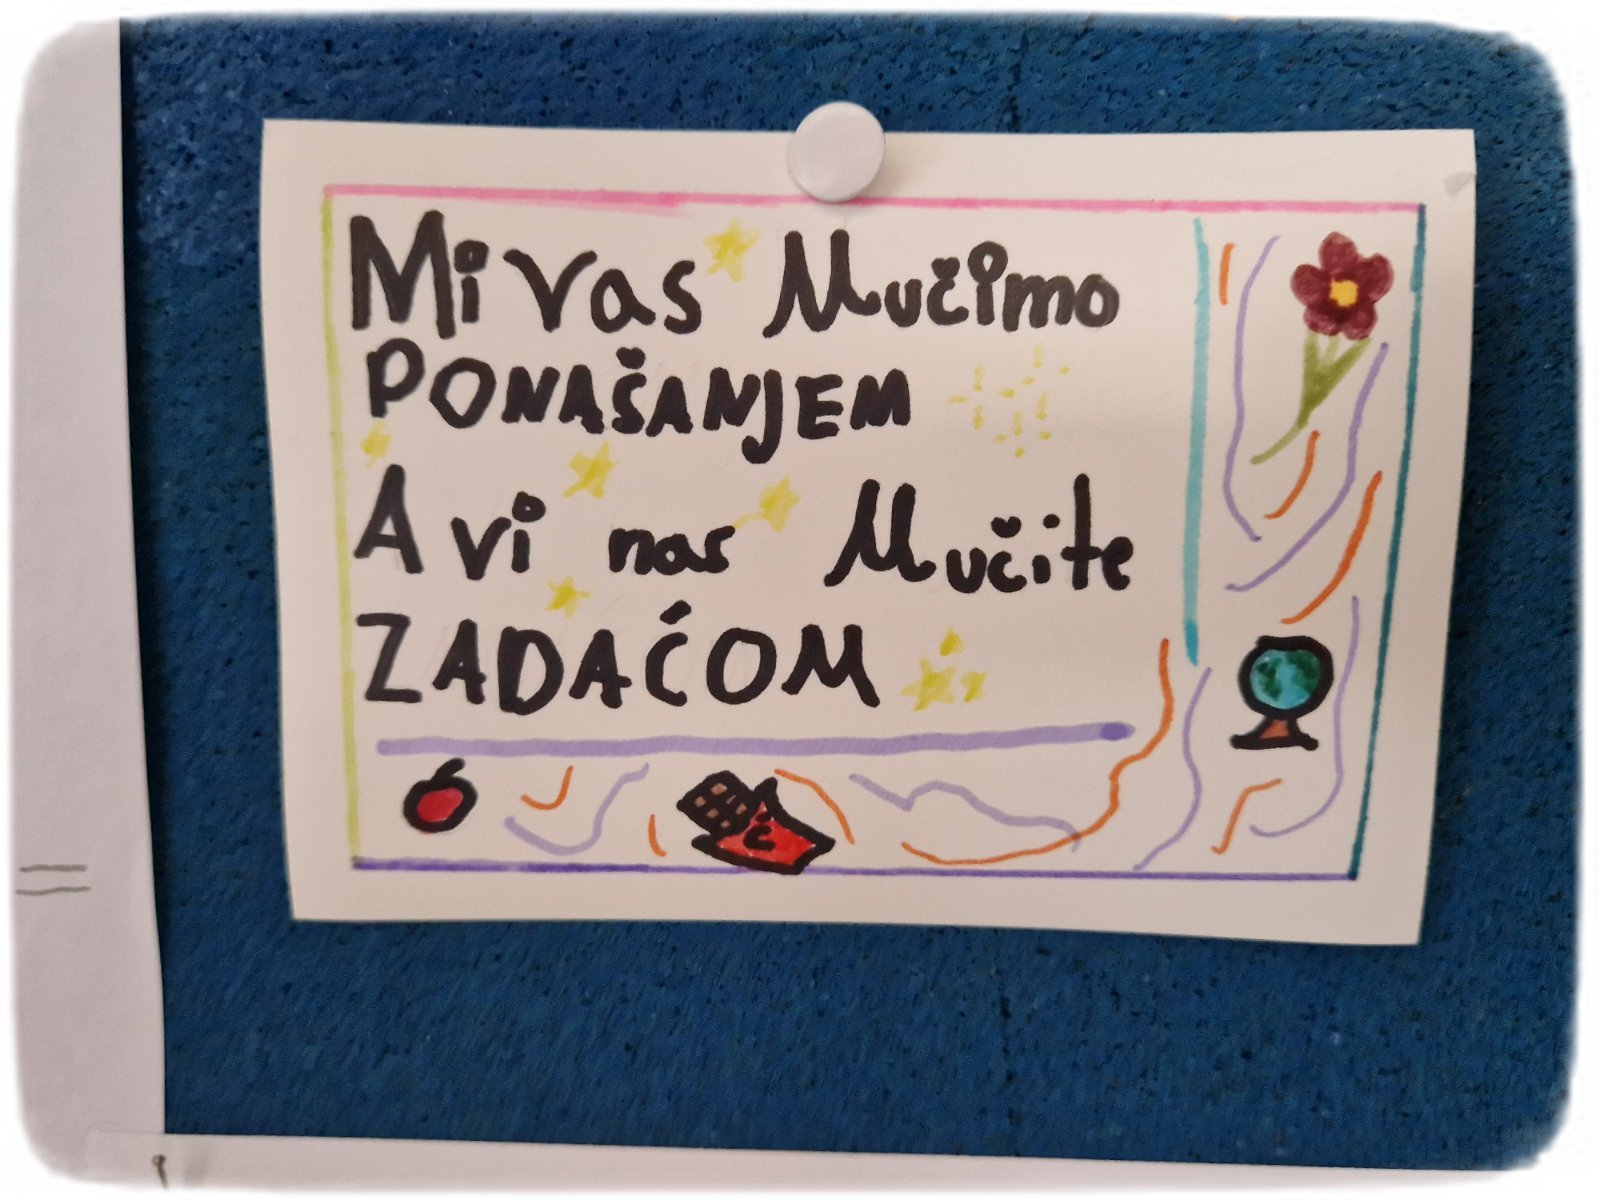 Mi vas Mučimo
PONAŠANJEM
A vi nas Mučite
ZADAĆOM
č